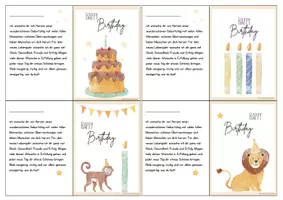 ich wünsche dir von Herzen einen
wunderschönen Geburtstag mit vielen tollen
Momenten, schönen Überraschungen und
lieben Menschen um dich herum. Für das
neue Lebensjahr wünsche ich dir ganz viel
Glück, Gesundheit, Freude und Erfolg. Mögen
viele deiner Wünsche in Erfüllung gehen und
jeder neue Tag dir etwas Schönes bringen.
Bleib neugierig, mutig und vor allem genauso
einzigartig, wie du bist!
HAPPY
Birthday
ich wünsche dir von Herzen einen
wunderschönen Geburtstag mit vielen tollen
Momenten, schönen Überraschungen und
lieben Menschen um dich herum. Für das
neue Lebensjahr wünsche ich dir ganz viel
Glück, Gesundheit, Freude und Erfolg. Mögen
viele deiner Wünsche in Erfüllung gehen und
jeder neue Tag dir etwas Schönes bringen.
Bleib neugierig, mutig und vor allem genauso
einzigartig, wie du bist!
HAPPY
Birthday
ich wünsche dir von Herzen einen
wunderschönen Geburtstag mit vielen tollen
Momenten, schönen Überraschungen und
lieben Menschen um dich herum. Für das
neue Lebensjahr wünsche ich dir ganz viel
Glück, Gesundheit, Freude und Erfolg. Mögen
viele deiner Wünsche in Erfüllung gehen und
jeder neue Tag dir etwas Schönes bringen.
Bleib neugierig, mutig und vor allem genauso
einzigartig, wie du bist!
HAPPY
Birthday
ich wünsche dir von Herzen einen
wunderschönen Geburtstag mit vielen tollen
Momenten, schönen Überraschungen und
lieben Menschen um dich herum. Für das
neue Lebensjahr wünsche ich dir ganz viel
Glück, Gesundheit, Freude und Erfolg. Mögen
viele deiner Wünsche in Erfüllung gehen und
jeder neue Tag dir etwas Schönes bringen.
Bleib neugierig, mutig und vor allem genauso
einzigartig, wie du bist!
HAPPY
Birthday